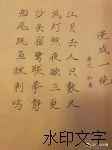 漫成一绝
唐代 杜甫
江月去人只数尺
风灯照夜欲三更
沙头宿鹭联拳静
船尾跳鱼拨剌鸣
水印文字